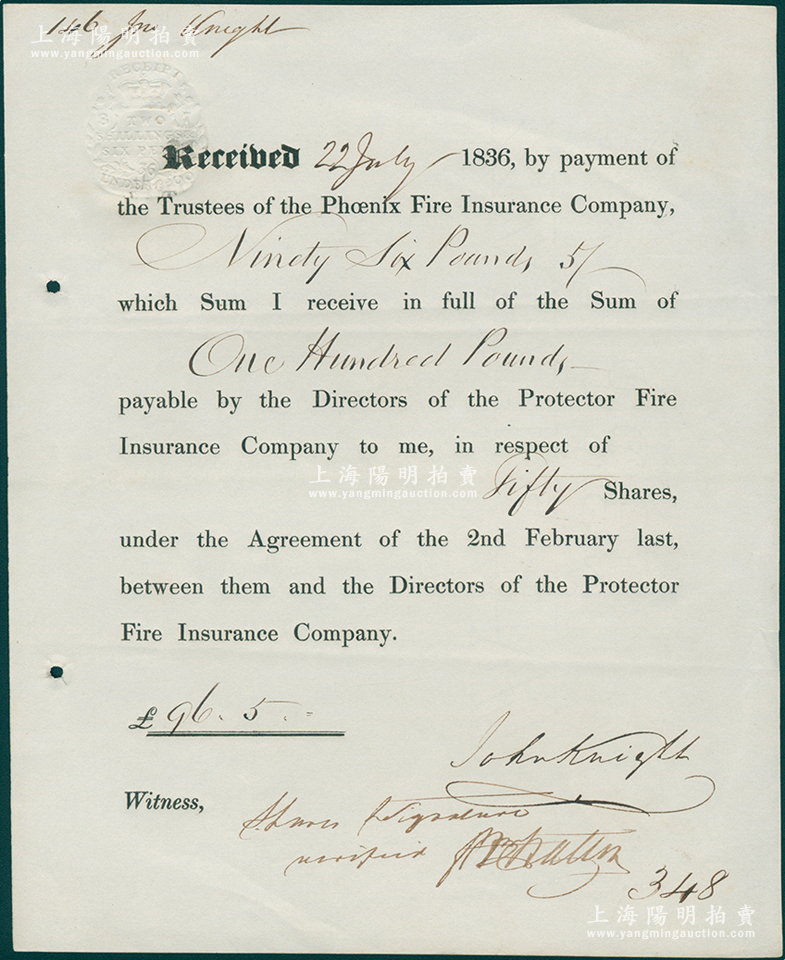 146 Jno Knight
上海陽明拍賣
www.yangmingauction.com
RECEIPT
TWO
SHILLINGS
SIX PENCE
Received 22 July 1836, by payment of
the Trustees of the Phœnix Fire Insurance Company,
Ninety Six Pounds 5/
which Sum I receive in full of the Sum of
One Hundred Pounds
payable by the Directors of the Protector Fire
Insurance Company to me, in respect of
上海陽明拍賣
www.yangmingauction.com
Fifty Shares,
under the Agreement of the 2nd February last,
between them and the Directors of the Protector
Fire Insurance Company.
£ 96. 5. -
John Knight
Witness,
Shares & Signature
verified
348
上海陽明拍賣
www.yangmingauction.com